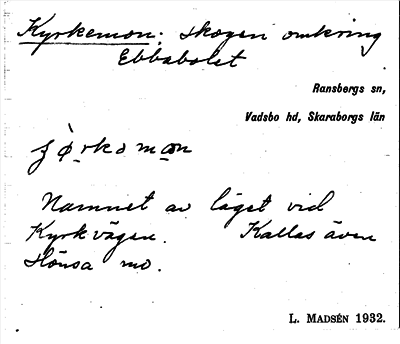 Kyrkemon: skogen omkring
Ebbabolet
Ransbergs sn,
Vadsbo hd, Skaraborgs län
Namnet av läget vid
Kyrkvägen. Kallas även
Hönsa mo.
L. MADSÉN 1932.